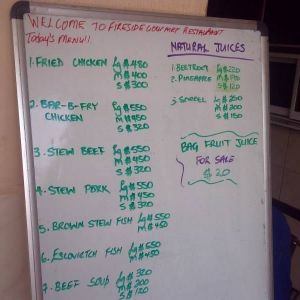 WELCOME TO FIRESIDE GOURMET RESTAURANT
Today's MENU!!
1. FRIED CHICKEN Lg $ 480
M $ 400
S $ 300
2. BAR-B-FRY Lg $ 550
CHICKEN M $ 450
S $ 320
3. STEW BEEF Lg $ 550
M $ 450
S $ 320
4. STEW PORK Lg $ 550
M $ 450
S $ 320
5. BROWN STEW FISH Lg $ 550
M $ 450
6. ESLOVIETCH FISH Lg $ 550
M $ 450
7. BEEF SOUP Lg $ 320
M $ 200
S $ 120
NATURAL JUICES
1. BEETROOT Lg $ 220
2. PINEAPPLE M $
S $ 120
3. SORREL Lg $ 250
M $ 200
S $ 150
BAG FRUIT JUICE
FOR SALE
$ 20